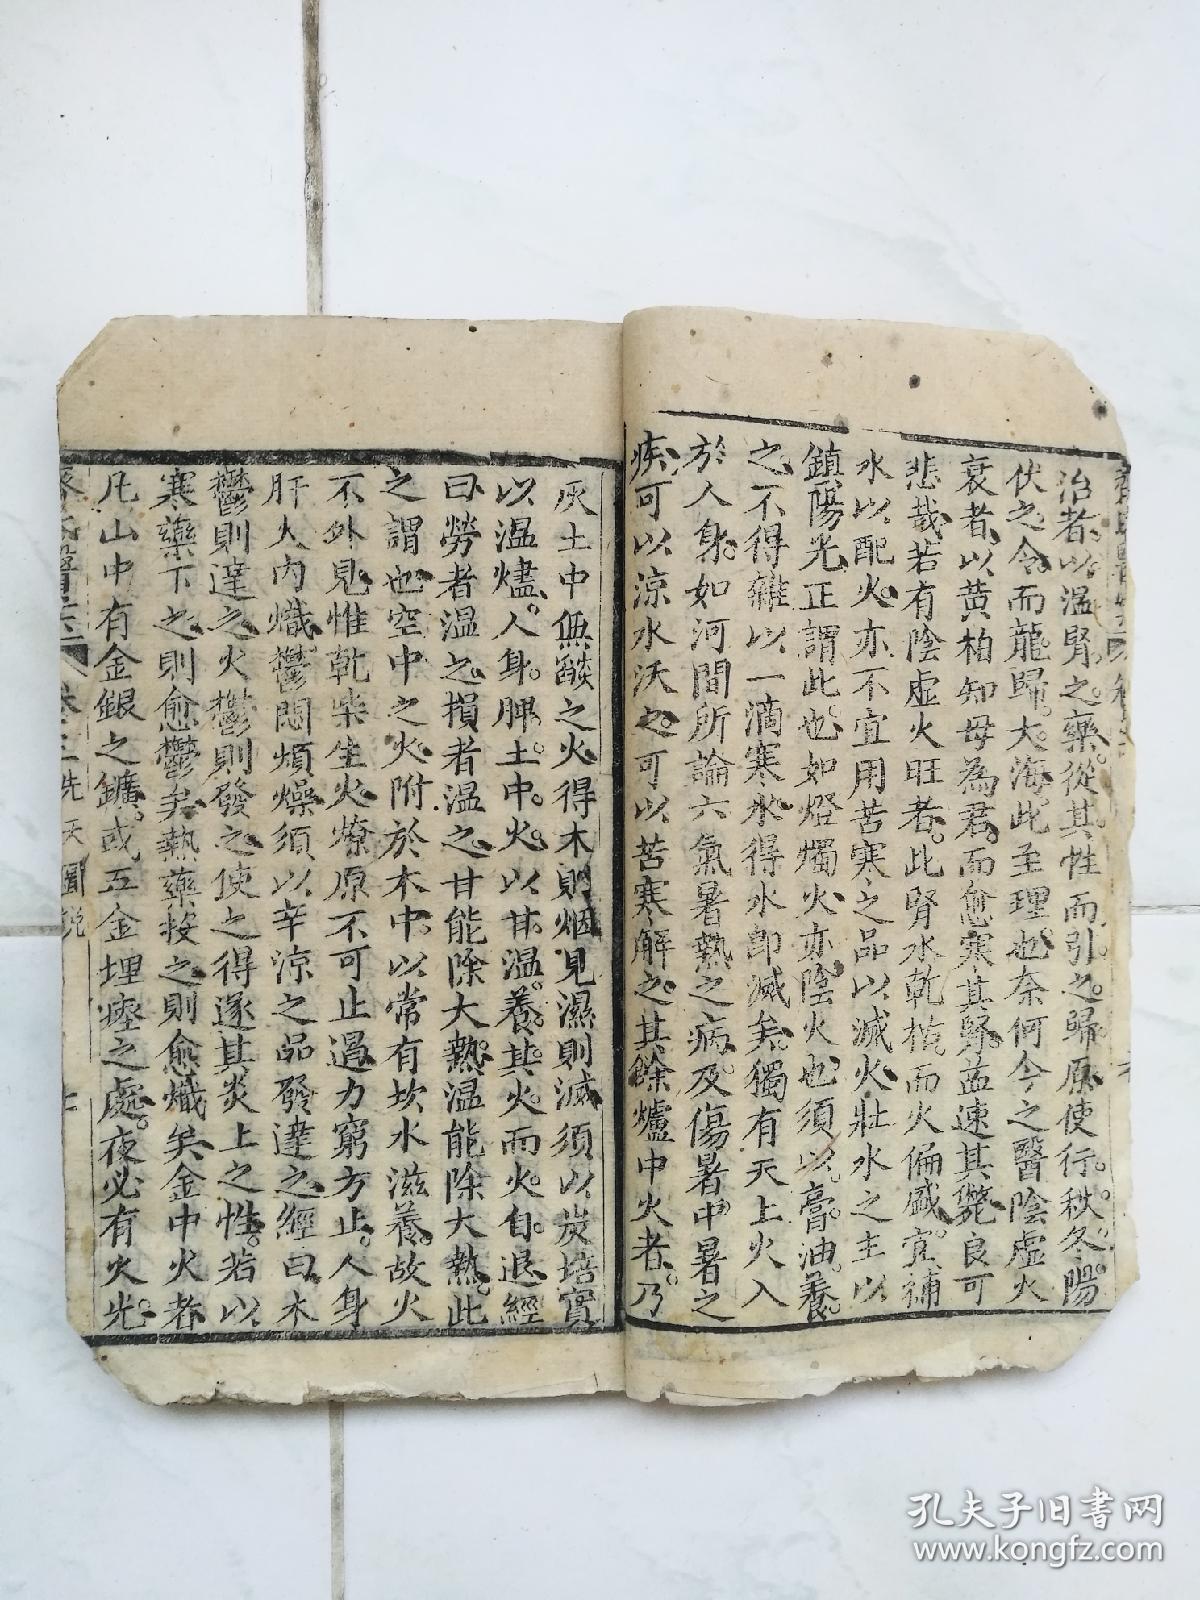 治者以温腎之藥從其性而引之歸原使行秋冬陽
伏之令而龍歸大海此至理也奈何今之醫陰虛火
衰者以黄柏知母為君而愈寒其腎益速其斃良可
悲哉若有陰虛火旺者此腎水乾枯而火偏盛宜補
水以配火亦不宜用苦寒之品以滅火壯水之主以
鎮陽光正謂此也如燈燭火亦陰火也須以膏油養
之不得雜以一滴寒水得水即滅矣獨有天上火入
於人身如河間所論六氣暑熱之病及傷暑中暑之
疾可以涼水沃之可以苦寒解之其餘爐中火者乃
灰土中無燄之火得木則烟見濕則滅須以炭培實
以温燼人身脾土中火以甘温養其火而火自退經
曰勞者温之損者温之甘能除大熱温能除大熱此
之謂也空中之火附於木中以常有坎水滋養故火
不外見惟乾柴生火燎原不可止遏力窮方止人身
肝火内熾鬱悶煩燥須以辛涼之品發達之經曰木
鬱則達之火鬱則發之使之得遂其炎上之性若以
寒藥下之則愈鬱矣熱藥投之則愈熾矣金中火者
凡山中有金銀之鑛或五金埋瘞之處夜必有火光
氏醫六 卷之三 先天圖說
孔夫子旧書网
www.kongfz.com